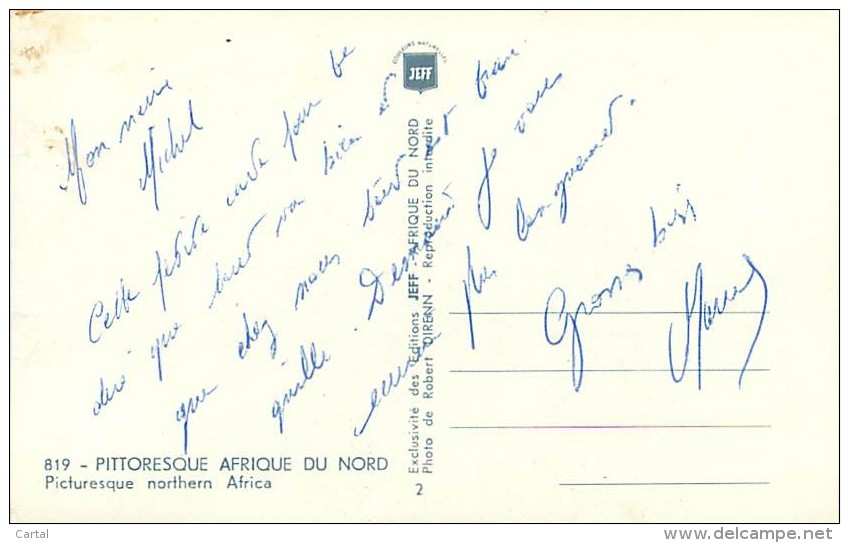 Mon
Michel
Cette petite carte pour te
dire que tout va bien et
que chez nous tout est tran
quille. Demain je vous
plus longuement.
Grosses bises
COULEURS NATURELLES
JEFF
Exclusivité des Editions JEFF - AFRIQUE DU NORD
Photo de Robert DIRENN - Reproduction interdite
2
819 - PITTORESQUE AFRIQUE DU NORD
Picturesque northern Africa
Cartal
www.delcampe.net